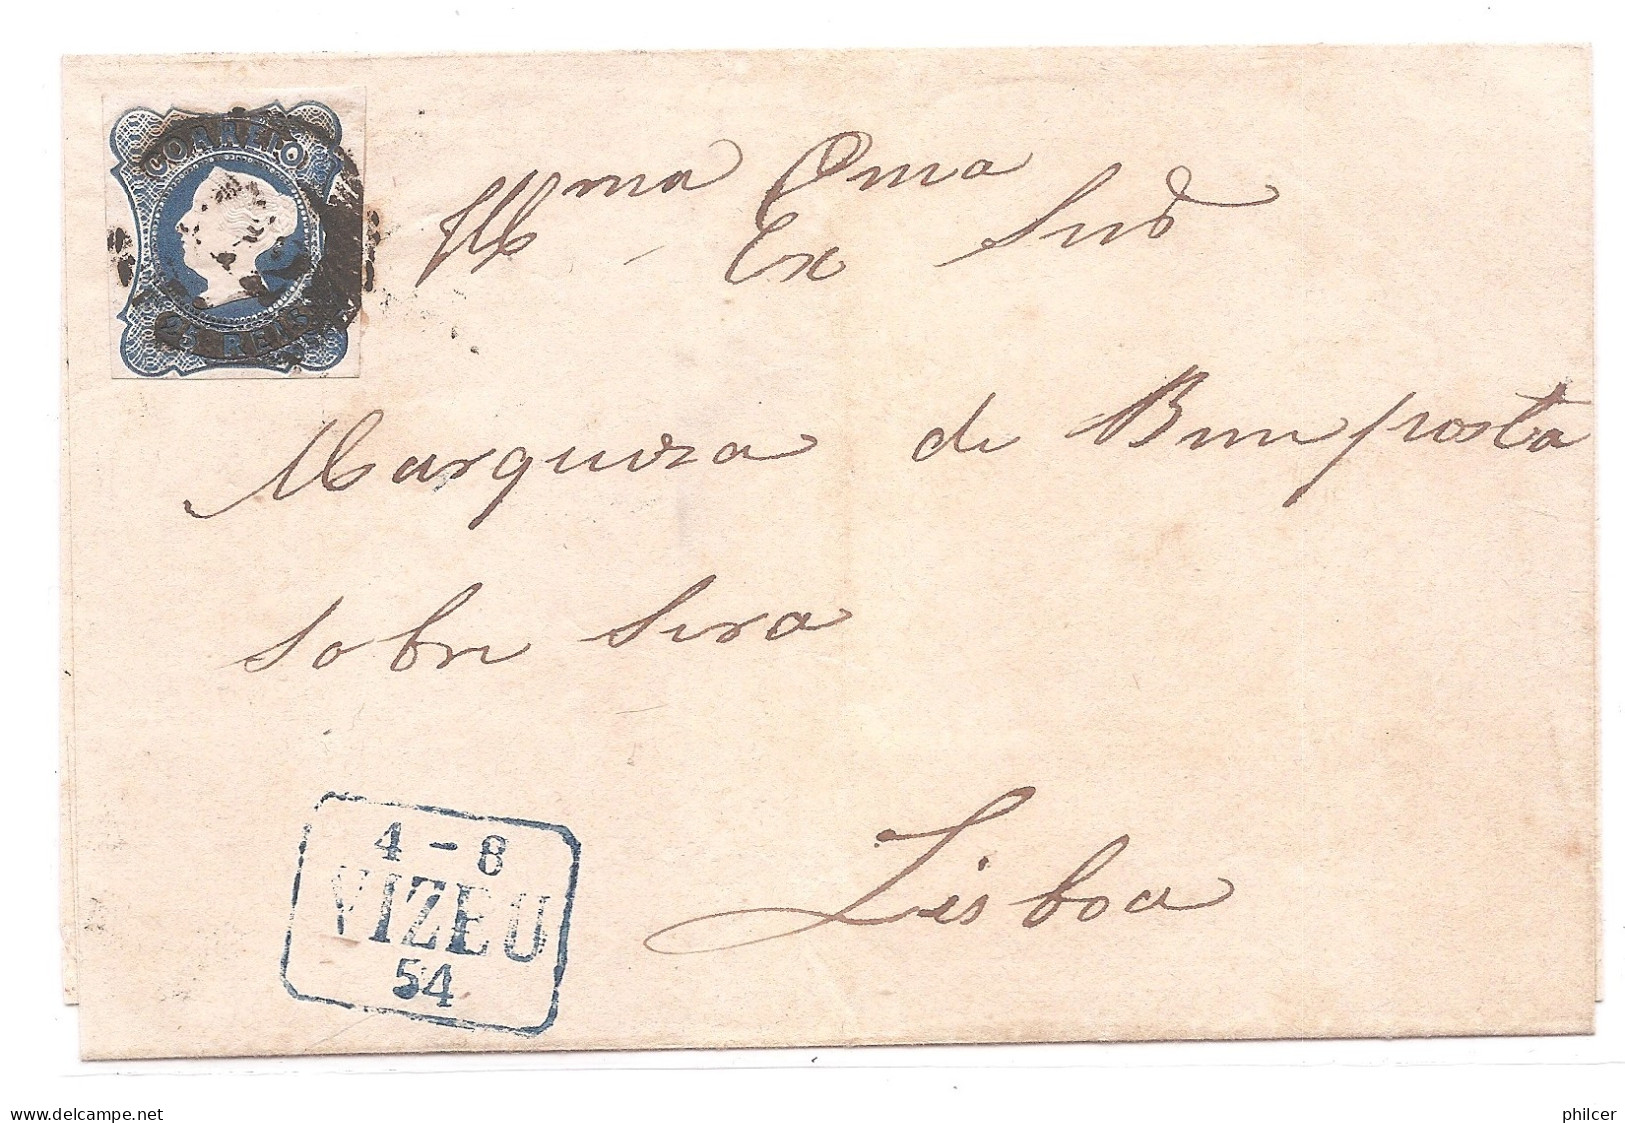 CORREIO
25 REIS
Illma Exma Snrª
Marqueza de Bemposta
Sobre Serra
Lisboa
4 - 8
VIZEU
54
delcampe.net
philcer